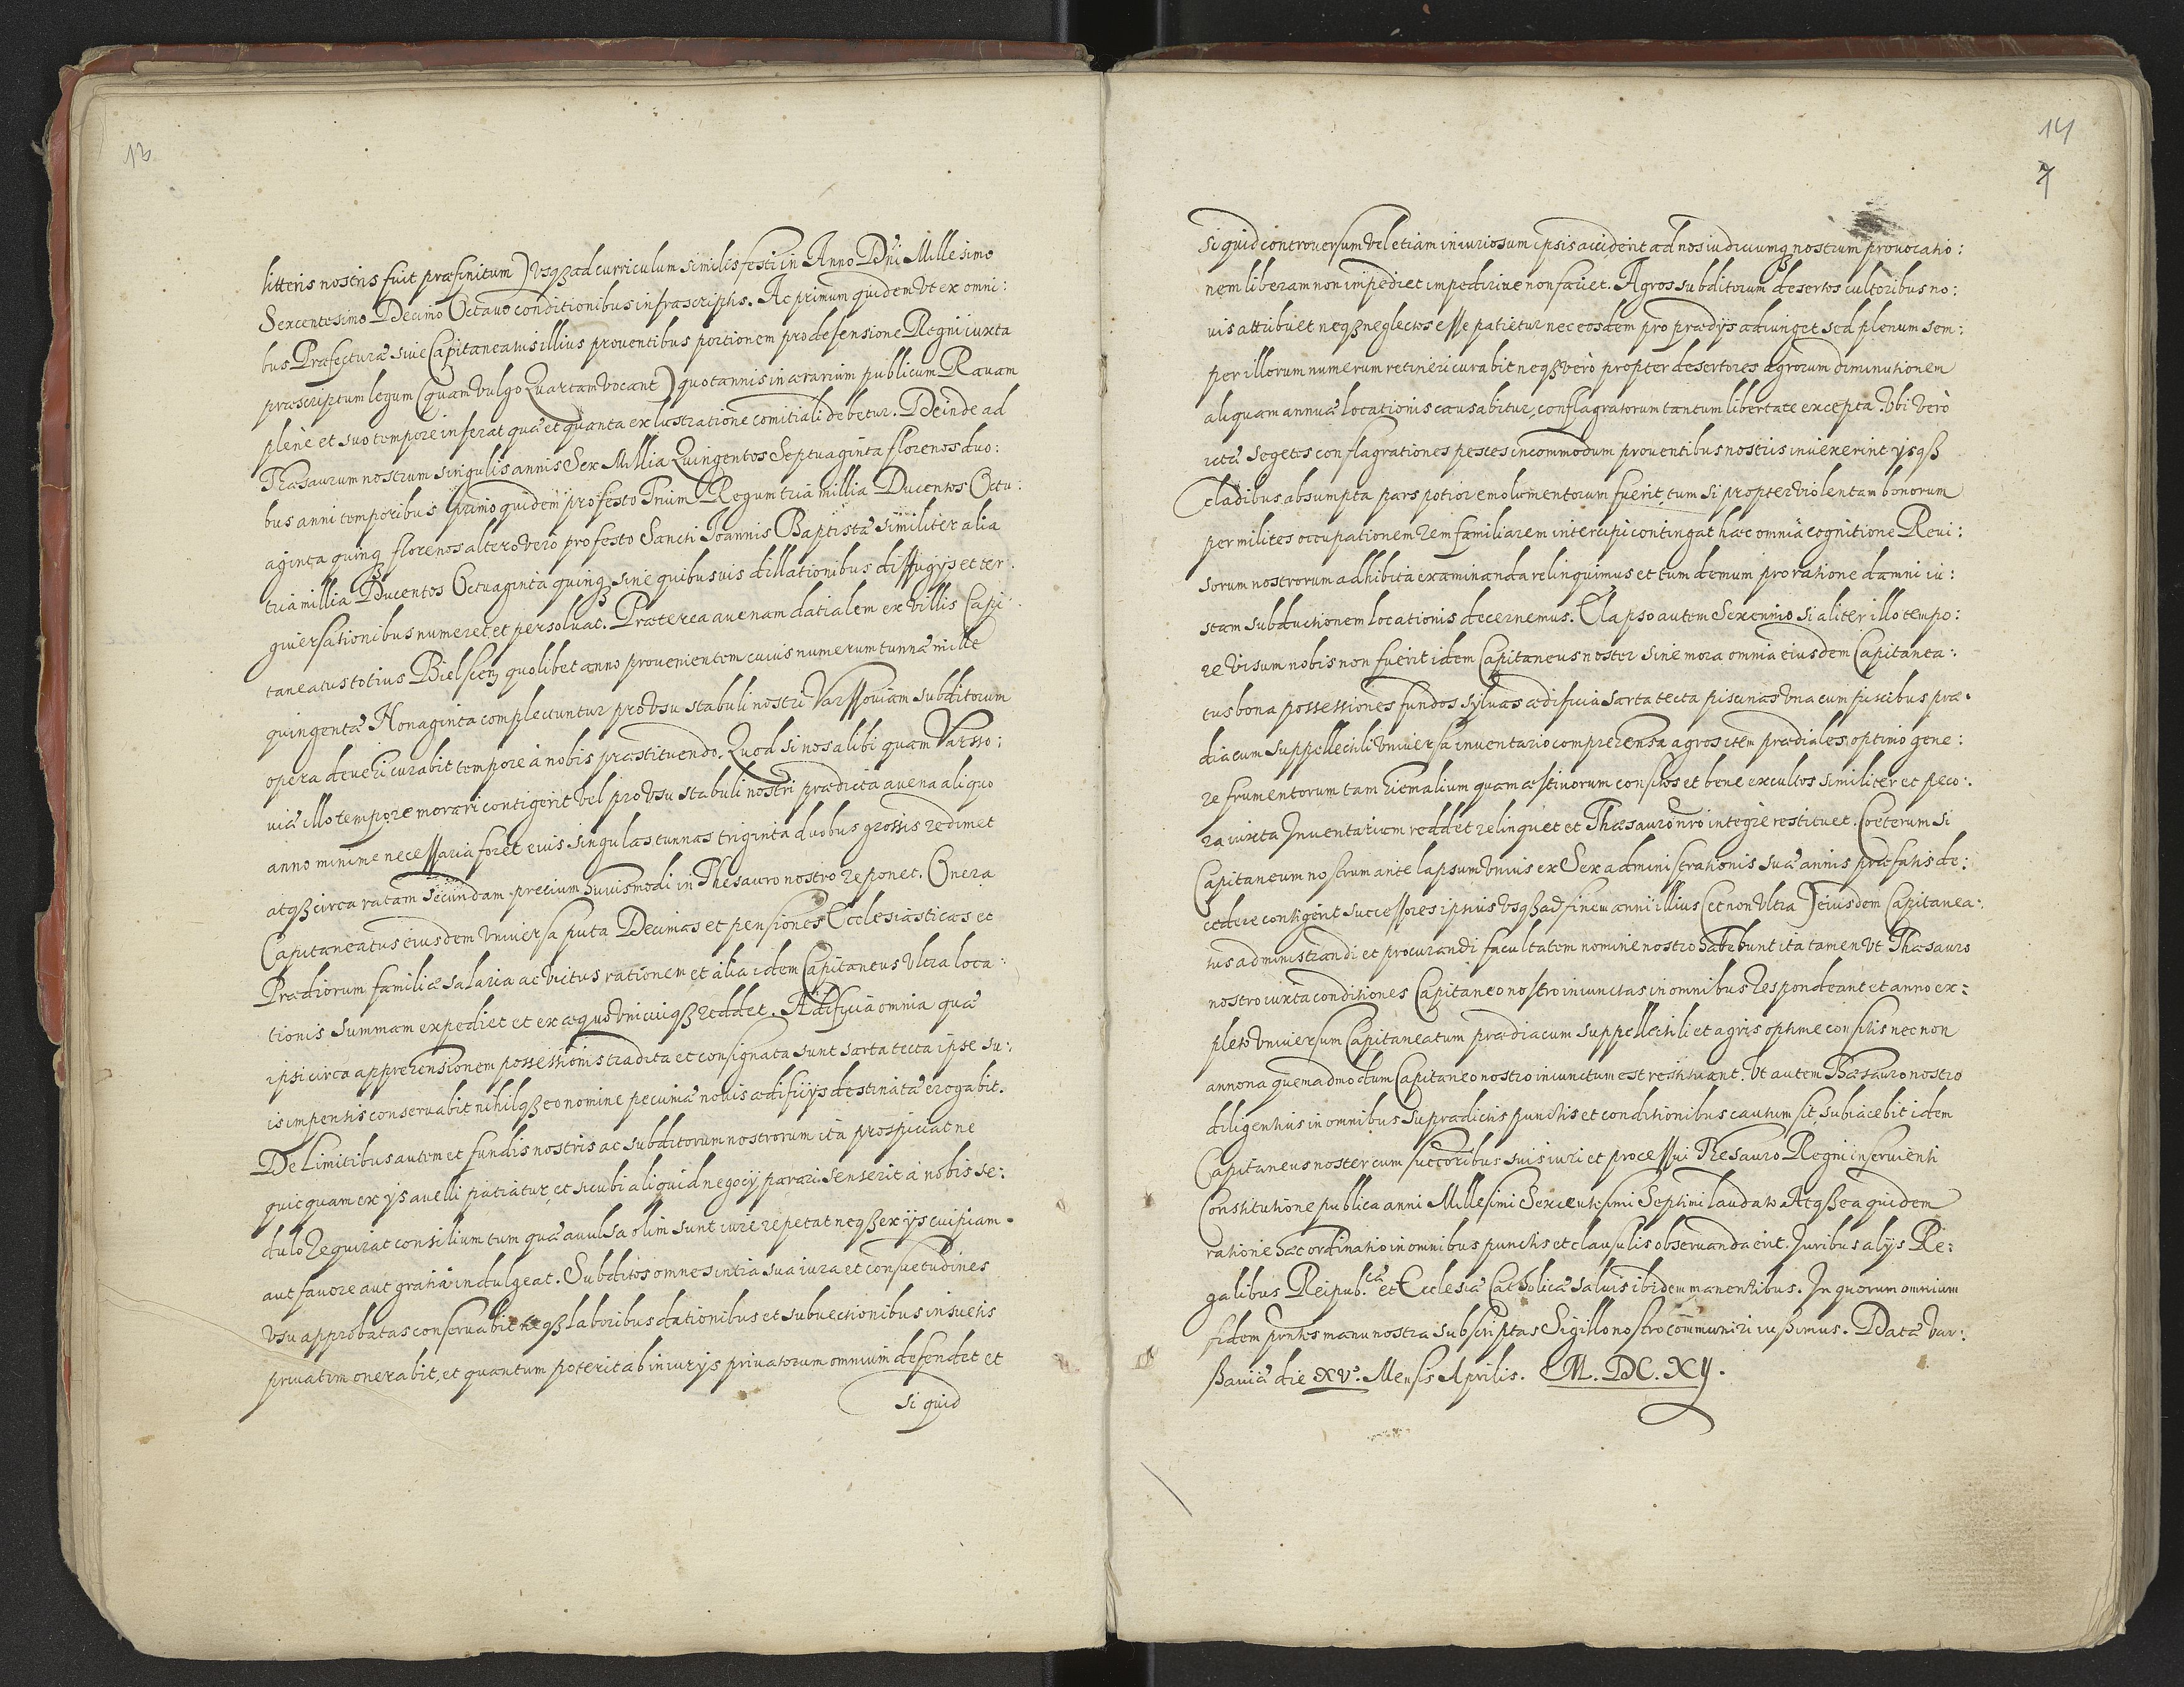 13
litteris nostris fuit præfinitum) vsqз ad curriculum similis festi in Anno Dñi Millesimo
Sexcentesimo Decimo Octauo conditionibus infrascriptis. Ac primum quidem vt ex omni:
bus Præfecturæ siue Capitaneatus illius prouentibus portionem pro defensione Regni iuxta
præscriptum legum (quam vulgo Quartam vocant) quotannis in ærarium publicum Rauam
plenè et suo tempore inferat quæ et quanta ex lustratione comitiali debetur. Deinde ad
Thæsaurum nostrum singulis annis Sex Millia Quingentos Septuaginta florenos duo:
bus anni temporibus primo quidem pro festo Trium Regum tria millia Ducentos Octu:
aginta quinqз florenos altero verò pro festo Sancti Ioannis Baptistæ similiter alia
tria millia Ducentos Octuaginta quinqз sine quibusuis dillationibus diffugijs et ter:
giuersationibus numeret et persoluat. Præterea auenam datialem ex villis Capi:
taneatus totius Bielscen quolibet anno prouenientem cuius numerum tunnæ mille
quingentæ Nonaginta complectuntur pro vsu stabuli nostri Varssouiam subditorum
opera deuehi curabit tempore à nobis præstituendo. Quod si nos alibi quam Varsso:
uiæ illo tempore morari contigerit vel pro vsu stabuli nostri prædicta auena aliquo
anno minime necessaria foret eius singulas tunnas triginta duobus grossis redimet
atqз circa ratam secundam precium huiusmodi in Thesauro nostro reponet. Onera
Capitaneatus eiusdem vniuersa puta Decimas et pensiones Ecclesiasticas et
Prædiorum familiæ salaria ac victus rationem et alia idem Capitaneus vltra loca:
tionis summam expediet et ex æquo vnicuiqз reddet. Ædificia omnia quæ
ipsi circa apprehensionem possessionis tradita et consignata sunt sarta tecta ipse su:
is impensis conseruabit nihilqз eo nomine pecuniæ nouis ædificijs destinatæ erogabit.
De Limitibus autem et fundis nostris ac subditorum nostrorum ita prospiciat ne
quicquam ex ijs auelli patiatur et sicubi aliquid negocij parari senserit à nobis se:
dulo requirat consilium tum quæ auulsa olim sunt iure repetat neqз ex ijs cuipiam
aut fauore aut gratia indulgeat. Subditos omnes intra sua iura et consuetudines
vsu approbatas conseruabit neqз laboribus dationibus et subuectionibus insuetis
priuatim onerabit, et quantum poterit ab iniurijs priuatorum omnium defendet et
si quid
14
7
Si quid controuersum vel etiam iniuriosum ipsis acciderit ad nos iudiciumqз nostrum prouocatio:
nem liberam non impediet impedirive non faciet. Agros subditorum desertos cultoribus no:
uis attribuet neqз neglectos esse patietur nec eosdem pro prædijs adiunget sed plenum sem:
per illorum numerum retineri curabit neqз verò propter desertores agrorum diminutionem
aliquam annuæ locationis causabitur, conflagratorum tantum libertate excepta. Vbi verò
ictæ segetes conflagrationes pestes incommodum prouentibus nostris inuexerint ijsqз
cladibus absumpta pars potior emolumentorum fuerit, tum si propter violentam bonorum
per milites occupationem rem familiarem intercipi contingat hæc omnia cognitione Reui:
sorum nostrorum adhibita examinanda relinquimus et tum demum pro ratione damni iu:
stam subductionem locationis decernemus. Elapso autem Sexennio si aliter illo tempo:
re visum nobis non fuerit idem Capitaneus noster sine mora omnia eiusdem Capitanea:
tus bona possessiones fundos syluas ædificia sarta tecta piscinas vna cum piscibus præ:
dia cum suppellectili vniuersa inuentario comprehensa agros item prædiales optimo gene:
re frumentorum tam hiemalium quam æstiuorum consitos et bene excultos similiter et peco:
ra iuxta Inuentarium reddet relinquet et Thæsauro nřo integrè restituet. Cœterum si
Capitaneum nostrum ante lapsum vnius ex Sex administrationis suæ annis præfatis de:
cedere contigerit successores ipsius vsqз ad finem anni illius (et non vltra) eiusdem Capitanea:
tus administrandi et procurandi facultatem nomine nostro habebunt ita tamen vt Thæsauro
nostro iuxta conditiones Capitaneo nostro iniunctas in omnibus respondeant et anno ex:
pleto vniuersum Capitaneatum prædia cum suppellectili et agris optime consitis nec non
annona quemadmodum Capitaneo nostro iniunctum est restituant. Vt autem Thæsauro nostro
diligentius in omnibus supradictis punctis et conditionibus cautum sit, subiacebit idem
Capitaneus noster cum succoribus suis iuri et processui Thesauro Regni inseruienti
Constitutione publica anni Millesimi Sexcentesimi Septimi laudato Atqз ea quidem
ratione hæc ordinatio in omnibus punctis et clausulis obseruanda erit. Iuribus alijs Re:
galibus Reipub.cæ et Ecclesiæ Catholicæ saluis ibidem manentibus. In quorum omnium
fidem pñtes manu nostra subscriptas Sigillo nostro communiri iussimus. Datæ Var:
ßauiæ die XV. Mensis Aprilis. M. DC. XII.